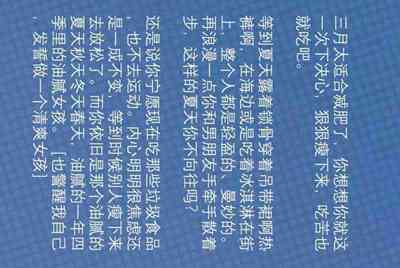 三月太适合减肥了，你想想你就这
一次下决心，狠狠瘦下来；吃苦也
就吃吧。
等到夏天露着锁骨穿着吊带裙啊热
裤啊，在海边或是吃着冰淇淋在街
上，整个人都是轻盈的、曼妙的。
再浪漫一点你和男朋友手牵手散着
步，这样的夏天你不向往吗？
还是说你宁愿现在吃那些垃圾食品
，也不去运动。内心明明很焦虑还
是一成不变。等到时候别人瘦下来
去放松了。而你依旧是那个油腻的
夏天秋天冬天春天，油腻的一年四
季里的油腻女孩。［也警醒我自己
，发誓做一个清爽女孩］